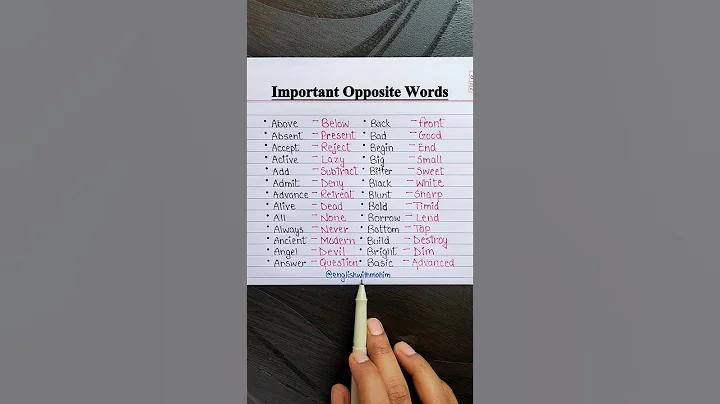 Important Opposite Words
• Above – Below • Back – front
• Absent – Present • Bad – Good
• Accept – Reject • Begin – End
• Active – Lazy • Big – Small
• Add – Subtract • Bitter – Sweet
• Admit – Deny • Black – White
• Advance – Retreat • Blunt – Sharp
• Alive – Dead • Bold – Timid
• All – None • Borrow – Lend
• Always – Never • Bottom – Top
• Ancient – Modern • Build – Destroy
• Angel – Devil • Bright – Dim
• Answer – Question • Basic – Advanced
@englishwithmohim